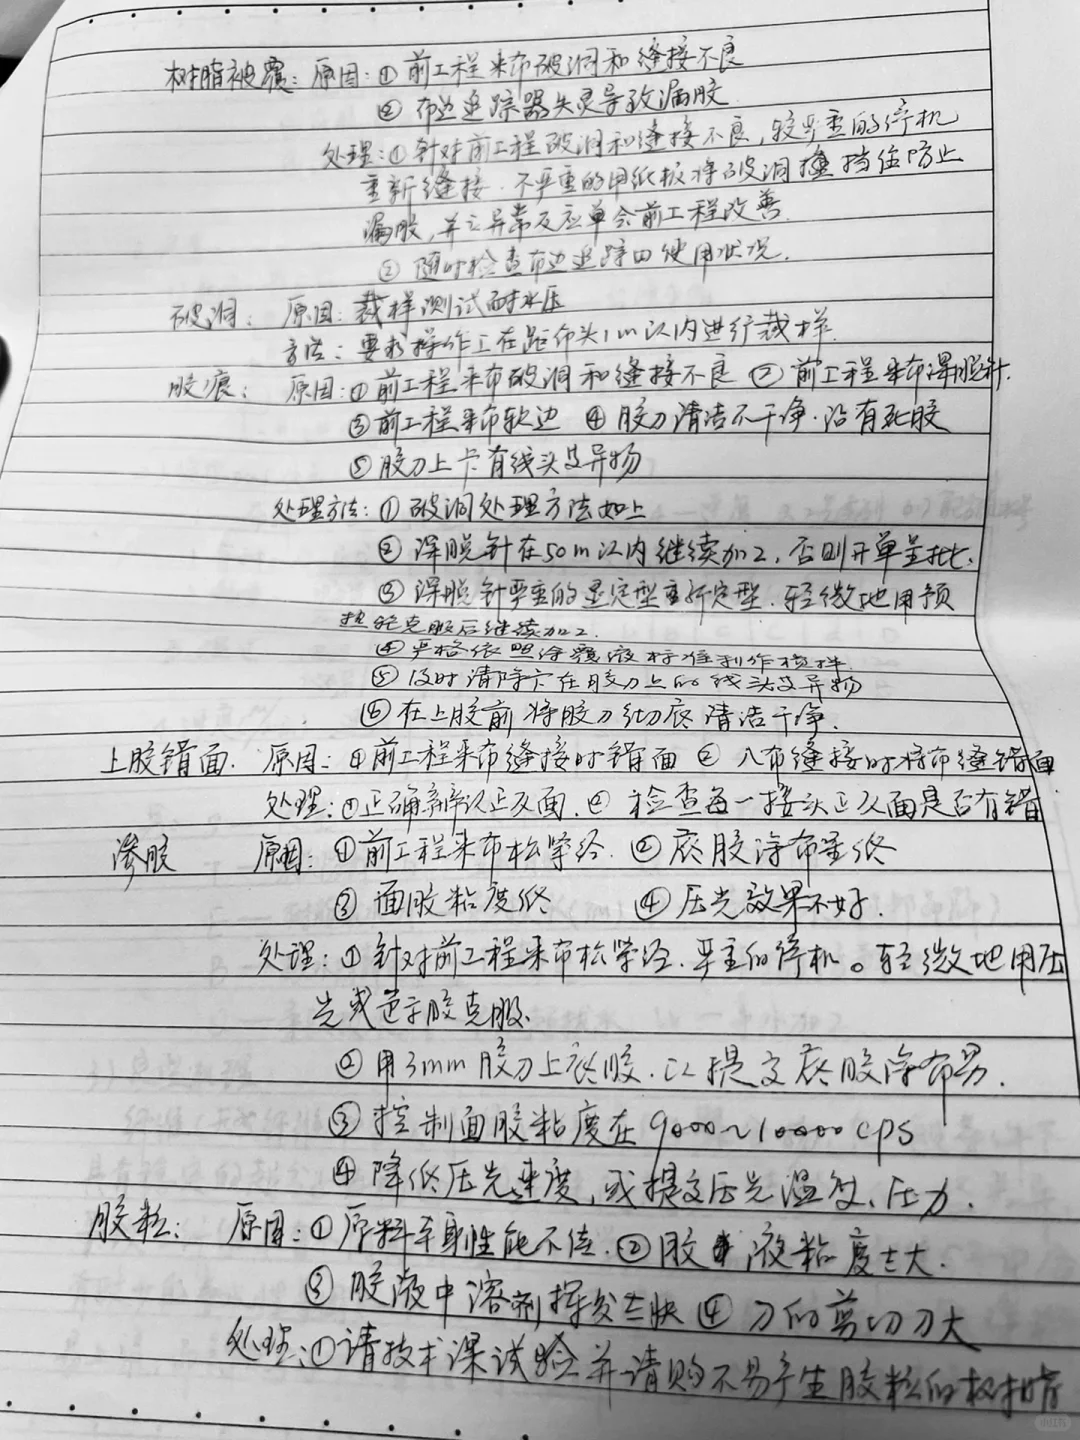 树脂被覆：原因：① 前工程来布破洞和缝接不良
② 布边追踪器失灵导致漏胶
处理：① 针对前工程破洞和缝接不良，较严重的停机
重新缝接．不严重的用纸板将破洞挡住防止
漏胶，并立异常反应单令前工程改善．
② 随时检查布边追踪的使用状况．
破洞：原因：裁样测试耐水压
方法：要求操作工在距布头1m以内进行裁样．
胶痕：原因：① 前工程来布破洞和缝接不良 ② 前工程来布深脱针．
③ 前工程来布软边 ④ 胶刀清洁不干净．沾有死胶
⑤ 胶刀上卡有线头及异物
处理方法：① 破洞处理方法如上
② 深脱针在50m以内继续加工，否则开单呈批．
③ 深脱针严重的退定型重新定型．轻微地用预
热轮克服后继续加工．
④ 严格依照涂覆液标准制作
⑤ 及时清除卡在胶刀上的线头及异物
⑥ 在上胶前将胶刀彻底清洁干净．
上胶错面．原因：① 前工程来布缝接时错面 ② 入布缝接时将布缝错面
处理：① 正确辨认正反面．② 检查每一接头正反面是否有错
渗胶 原因：① 前工程来布松紧经．② 底胶涂布量低
③ 面胶粘度低 ④ 压光效果不好．
处理：① 针对前工程来布松紧经．严重的停机。轻微地用压
光或 胶克服．
② 用3mm胶刀上底胶．以提高底胶涂布量．
③ 控制面胶粘度在9000~10000cps
④ 降低压光速度，或提高压光温度、压力．
胶粒：原因：① 原料本身性能不佳．② 胶液粘度太大．
③ 胶液中溶剂挥发太快 ④ 刀的剪切力大
处理：① 请技术课试验并请购不易产生胶粒的树脂
小红书